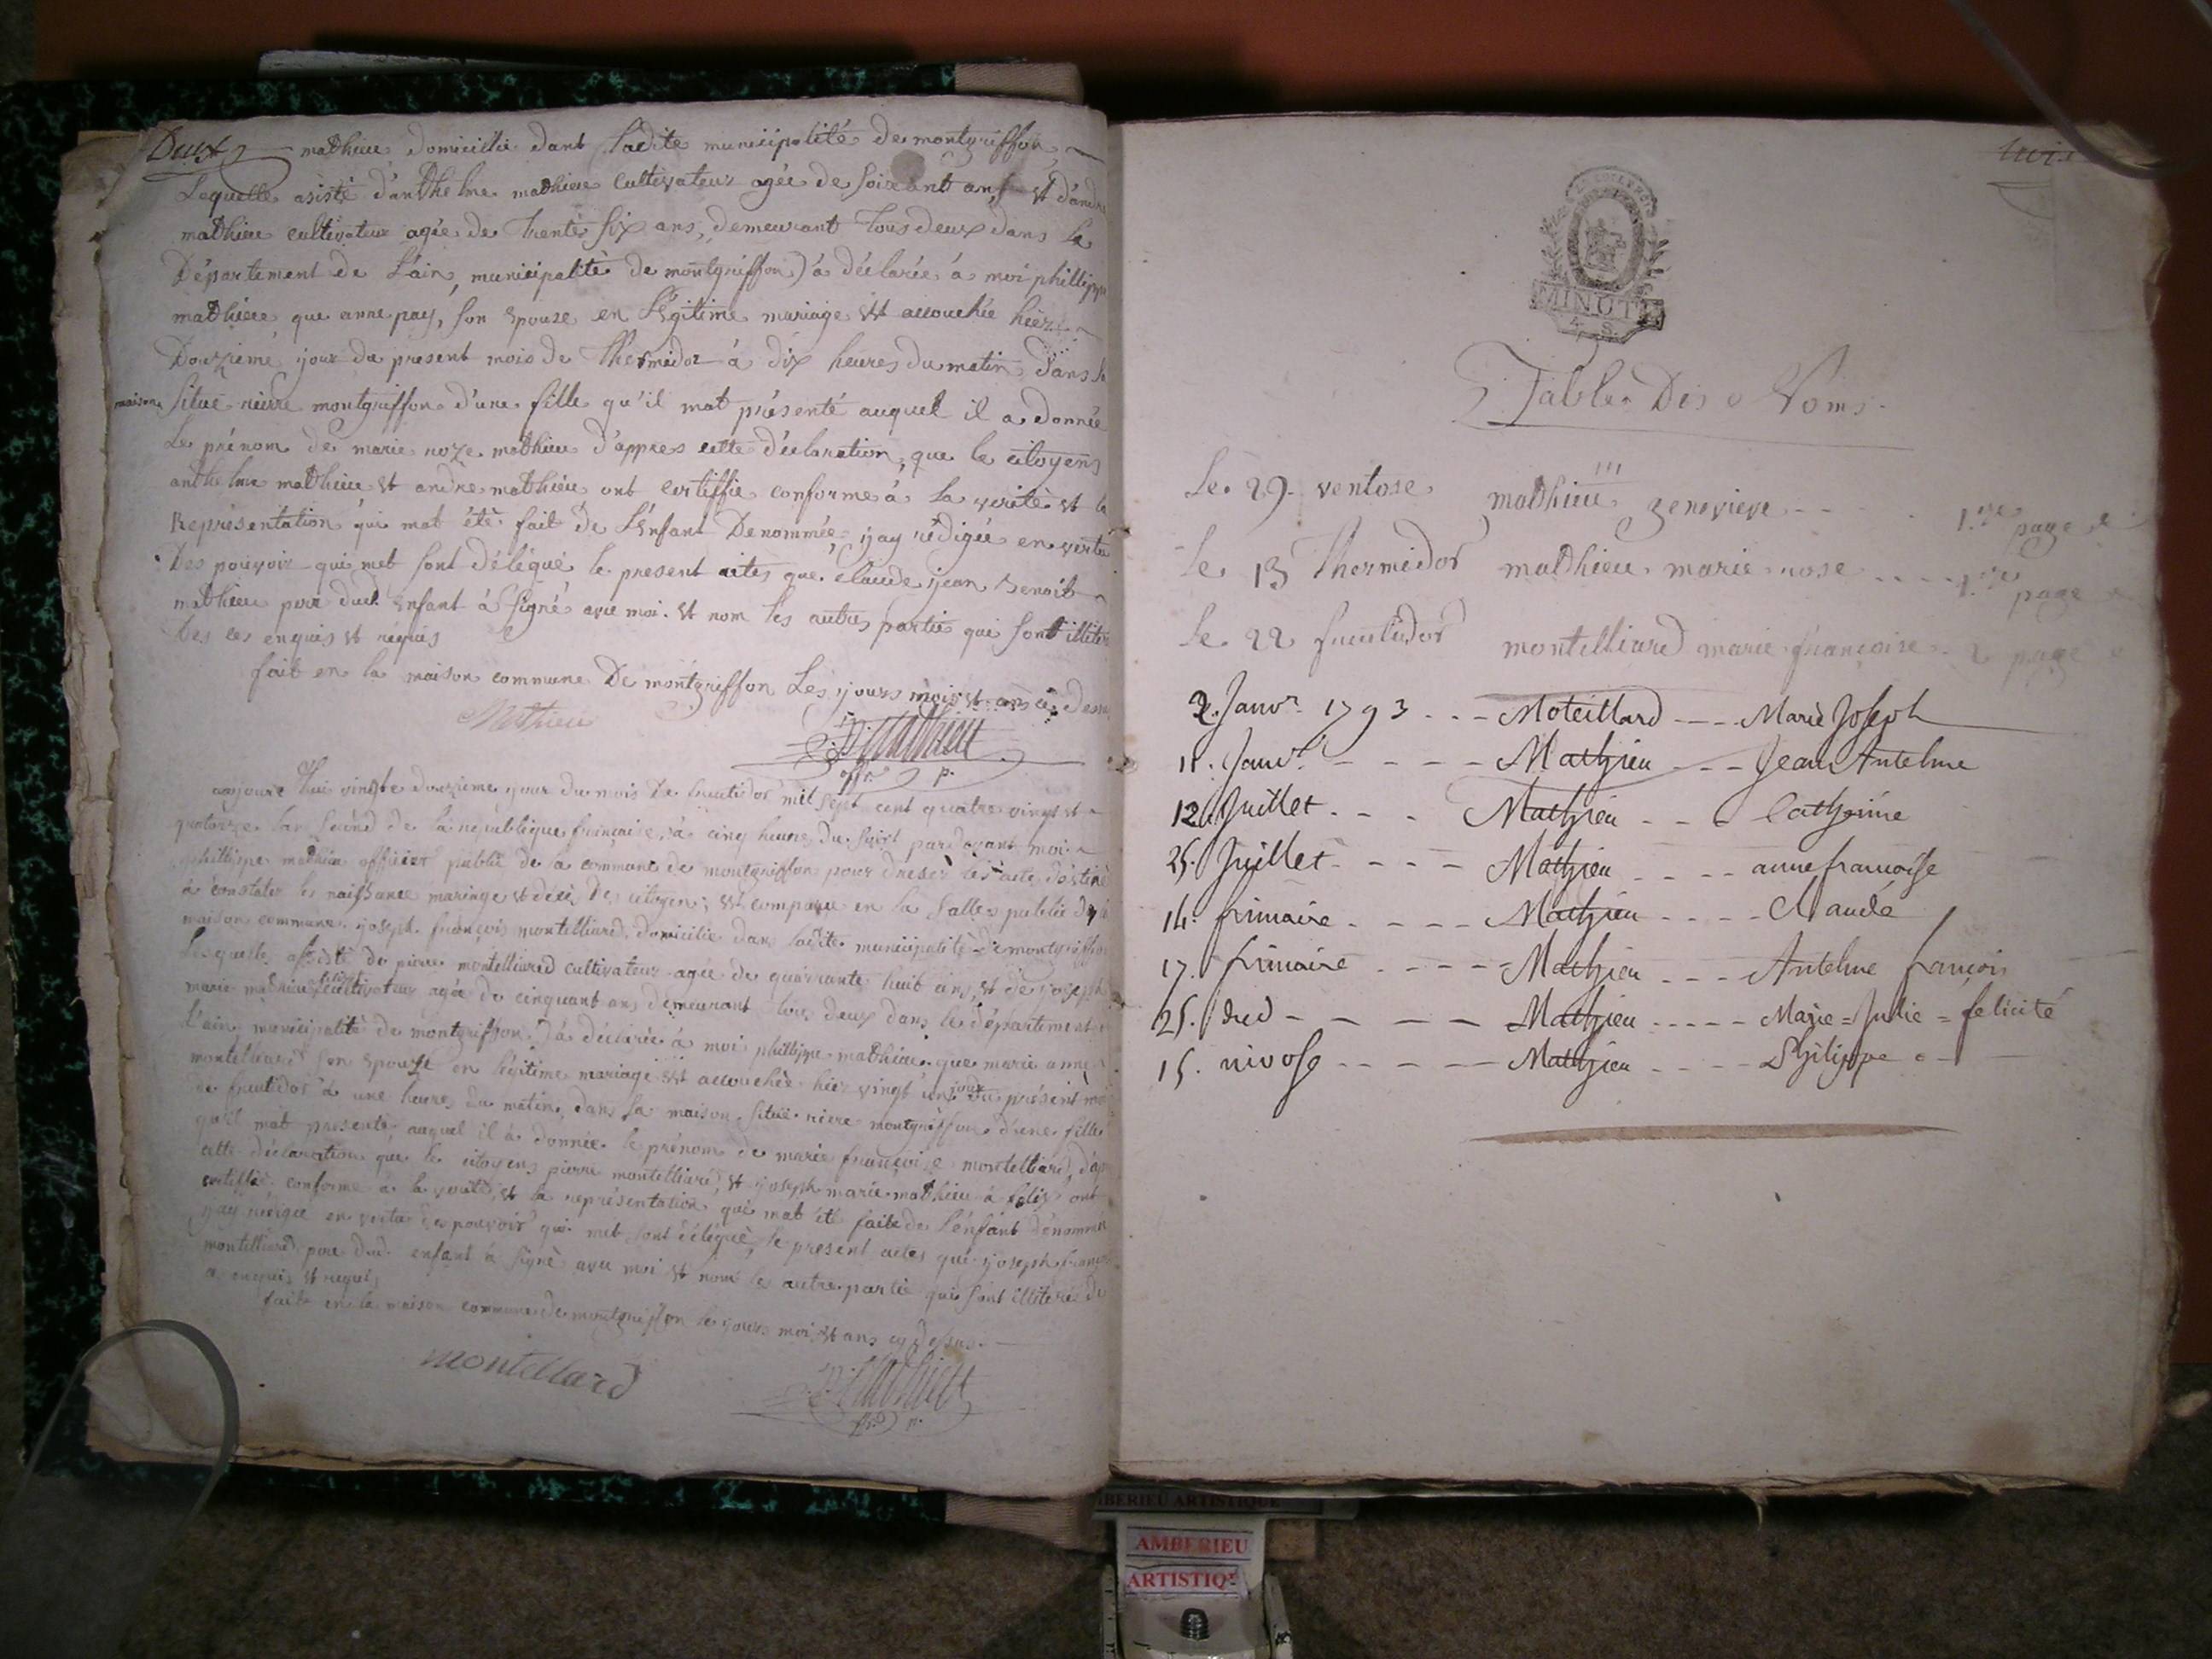 Deux mathieu domicillie dans ladite municipalité de montgriffon
Lequelle asisté d'anthelme mathieu cultivateur agée de soixant ans et d'andre
mathieu cultivateur agée de trente six ans, demeurant tous deux dans le
Département de L'ain, municipalité de montgriffon) à déclarée à moi phillippe
mathieu que anne pay, son epouse en légitime mariage est accouchée hièr
Douzieme jour du present mois de thermidor à dix heures du matin dans sa
maison situé rierre montgriffon d'une fille qu'il mat présenté auquel il a donnée
Le prénom de marie roze mathieu d'appres cette déclaration, que le citoyens
anthelme mathieu et andré mathieu ont certiffie conforme à la verité et la
Représentation qui mat été fait de L'Enfant Denommée, j'ay rédigée en vertu
Des pouvoir qui met sont délégué le present actes que claude jean benoit
mathieu pere dud. enfant à signé avec moi et nom les autres parties qui sont illiteré
des ces enquis et requis
fait en la maison commune De montgriffon Les jours mois et ans ci dessu
Mathieu
P. Mathieu
off. p.
aujourd'hui vingte douzieme jour du mois de fructidor mil sept cent quatre vingt et
quatorze la second de la republique française, à cinq heures du soir pardevant moi
phillippe mathieu officier public de la commune de montgriffon pour dreser les acte destiné
à constater les naissance mariage et décé des citoyen; est comparu en la salle public de la
maison commune joseph françois montelliard domicilie dans ladite municipalité de montgriffon
Lequelle assisté de pierre montelliard cultivateur agée de quarante huit ans, et de joseph
marie mathieu felix cultivateur agée de cinquant ans demeurant tous deux dans le département
L'ain, municipalité de montgriffon) à déclarée à moi phillippe mathieu que marie anne
montelliard son epouse en légitime mariage est accouchée hier vingt un jour du présent mois
de fructidor à une heures du matin, dans sa maison situé riere montgriffon d'une fille
qu'il mat presenté auquel il à donnée le prénom de marie françoise montelliard, d'apres
cette déclaration que le citoyens pierre montelliard, et joseph marie mathieu à felix ont
certiffié conforme à la verité, et la représentation qui mat été faite de L'enfant dénommée
j'ay redigée en vertu des pouvoir qui met sont délégué, le present actes que joseph françois
montelliard pere dud. enfant à signé avec moi et nom les autre partie qui sont illiteré de
ce enquis et requis
fait en la maison commune de montgriffon les jours mois et ans cy dessus.
montellard
P. Mathieu
off. p.
trois
MINUTE
4. S.
Table Des Noms
Le 29 ventose mathieu genevieve - - - - 1.ere page
Le 13 Thermidor mathieu marie rose - - - - 1.ere page
Le 22 fructidor montelliard marie françoise - 2 page
2. Janvr. 1793 - - - Moteillard - - - Marie Joseph
11. Janvr. - - - - Mathieu - - - Jean Antelme
12. Juillet - - - Mathieu - - - Catherine
25. Juillet - - - - Mathieu - - - - anne francoise
14. frimaire - - - - Mathieu - - - - Claude
17. frimaire - - - - Mathieu - - - Antelme françois
25. dud - - - - Mathieu - - - - - Marie = Julie = felicité
15. nivose - - - - Mathieu - - - - Philippe
AMBERIEU ARTISTIQUE
AMBERIEU
ARTISTIQUE